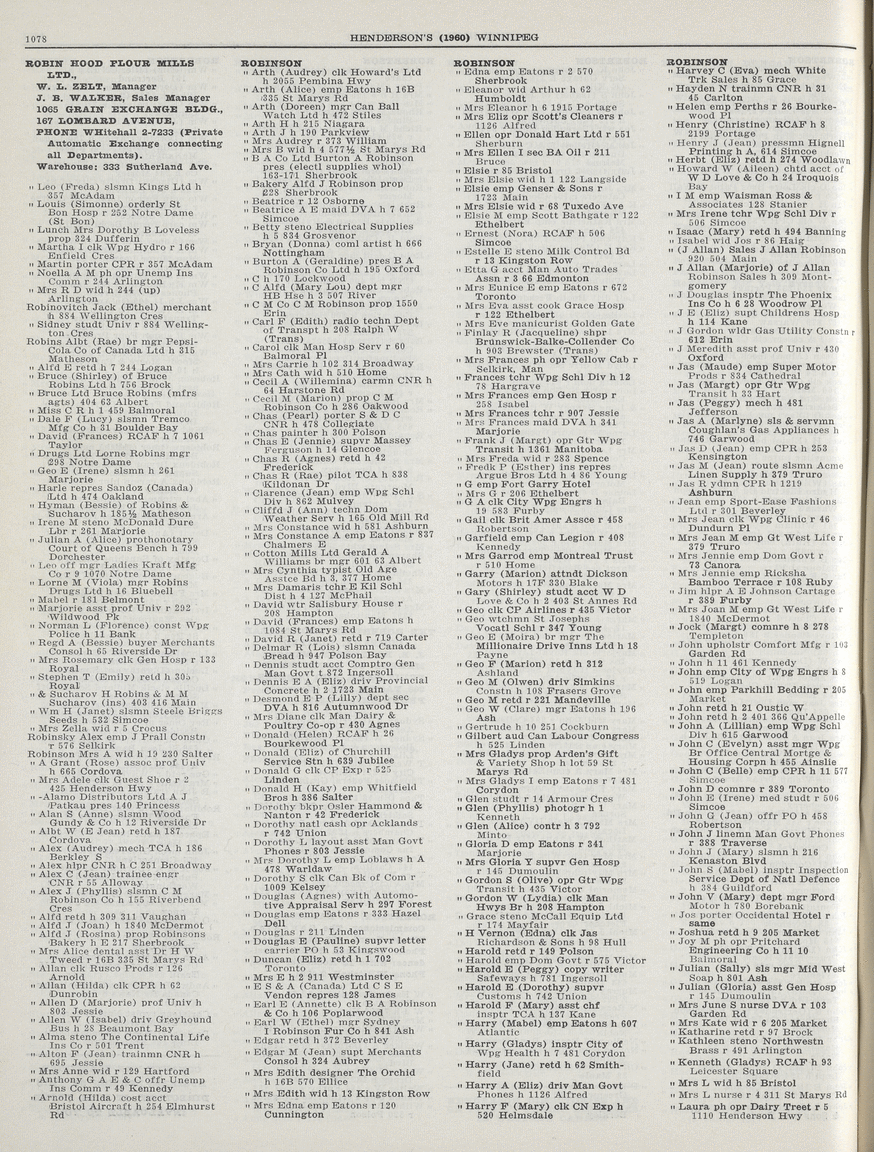 1078
HENDERSON'S (1960) WINNIPEG
ROBIN HOOD FLOUR MILLS
LTD.,
W. L. ZELT, Manager
J. B. WALKER, Sales Manager
1065 GRAIN EXCHANGE BLDG.,
167 LOMBARD AVENUE,
PHONE WHitehall 2-7233 (Private
Automatic Exchange connecting
all Departments).
Warehouse: 333 Sutherland Ave.
" Leo (Freda) slsmn Kings Ltd h
357 McAdam
" Louis (Simonne) orderly St
Bon Hosp r 252 Notre Dame
(St Bon)
" Lunch Mrs Dorothy B Loveless
prop 324 Dufferin
" Martha I clk Wpg Hydro r 166
Enfield Cres
" Martin porter CPR r 357 McAdam
" Noella A M ph opr Unemp Ins
Comm r 244 Arlington
" Mrs R D wid h 244 (up)
Arlington
Robinovitch Jack (Ethel) merchant
h 884 Wellington Cres
" Sidney studt Univ r 884 Welling-
ton Cres
Robins Albt (Rae) br mgr Pepsi-
Cola Co of Canada Ltd h 315
Matheson
" Alfd E retd h 7 244 Logan
" Bruce (Shirley) of Bruce
Robins Ltd h 756 Brock
" Bruce Ltd Bruce Robins (mfrs
agts) 404 63 Albert
" Miss C R h 1 459 Balmoral
" Dale F (Lucy) slsmn Tremco
Mfg Co h 31 Boulder Bay
" David (Frances) RCAF h 7 1061
Taylor
" Drugs Ltd Lorne Robins mgr
298 Notre Dame
" Geo E (Irene) slsmn h 261
Marjorie
" Harle repres Sandoz (Canada)
Ltd h 474 Oakland
" Hyman (Bessie) of Robins &
Sucharov h 185½ Matheson
" Irene M steno McDonald Dure
Lbr r 261 Marjorie
" Julian A (Alice) prothonotary
Court of Queens Bench h 799
Dorchester
" Leo off mgr Ladies Kraft Mfg
Co r 9 1070 Notre Dame
" Lorne M (Viola) mgr Robins
Drugs Ltd h 16 Bluebell
" Mabel r 181 Belmont
" Marjorie asst prof Univ r 292
Wildwood Pk
" Norman L (Florence) const Wpg
Police h 11 Bank
" Regd A (Bessie) buyer Merchants
Consol h 65 Riverside Dr
" Mrs Rosemary clk Gen Hosp r 133
Royal
" Stephen T (Emily) retd h 305
Royal
" & Sucharov H Robins & M M
Sucharov (ins) 403 416 Main
" Wm H (Janet) slsmn Steele Briggs
Seeds h 532 Simcoe
" Mrs Zella wid r 5 Crocus
Robinsky Alex emp J Prall Constn
r 576 Selkirk
Robinson Mrs A wid h 19 230 Salter
" A Grant (Rose) assoc prof Univ
h 665 Cordova
" Mrs Adele clk Guest Shoe r 2
425 Henderson Hwy
" -Alamo Distributors Ltd A J
Patkau pres 140 Princess
" Alan S (Anne) slsmn Wood
Gundy & Co h 12 Riverside Dr
" Albt W (E Jean) retd h 187
Cordova
" Alex (Audrey) mech TCA h 186
Berkley S
" Alex hlpr CNR h C 251 Broadway
" Alex C (Jean) trainee engr
CNR r 55 Alloway
" Alex J (Phyllis) slsmn C M
Robinson Co h 155 Riverbend
Cres
" Alfd retd h 309 311 Vaughan
" Alfd J (Joan) h 1840 McDermot
" Alfd J (Rosina) prop Robinsons
Bakery h E 217 Sherbrook
" Mrs Alice dental asst Dr H W
Tweed r 16B 335 St Marys Rd
" Allan clk Rusco Prods r 126
Arnold
" Allan (Hilda) clk CPR h 62
Dunrobin
" Allen D (Marjorie) prof Univ h
803 Jessie
" Allen W (Isabel) driv Greyhound
Bus h 28 Beaumont Bay
" Alma steno The Continental Life
Ins Co r 501 Trent
" Alton F (Jean) trainmn CNR h
695 Jessie
" Mrs Anne wid r 129 Hartford
" Anthony G A E & C offr Unemp
Ins Comm r 49 Kennedy
" Arnold (Hilda) cost acct
Bristol Aircraft h 254 Elmhurst
Rd
ROBINSON
" Arth (Audrey) clk Howard's Ltd
h 2055 Pembina Hwy
" Arth (Alice) emp Eatons h 16B
335 St Marys Rd
" Arth (Doreen) mgr Can Ball
Watch Ltd h 472 Stiles
" Arth H h 215 Niagara
" Arth J h 190 Parkview
" Mrs Audrey r 373 William
" Mrs B wid h 4 577½ St Marys Rd
" B A Co Ltd Burton A Robinson
pres (electl supplies whol)
163-171 Sherbrook
" Bakery Alfd J Robinson prop
228 Sherbrook
" Beatrice r 12 Osborne
" Beatrice A E maid DVA h 7 652
Simcoe
" Betty steno Electrical Supplies
h 5 834 Grosvenor
" Bryan (Donna) coml artist h 666
Nottingham
" Burton A (Geraldine) pres B A
Robinson Co Ltd h 195 Oxford
" C h 170 Lockwood
" C Alfd (Mary Lou) dept mgr
HB Hse h 3 507 River
" C M Co C M Robinson prop 1550
Erin
" Carl F (Edith) radio techn Dept
of Transpt h 208 Ralph W
(Trans)
" Carol clk Man Hosp Serv r 60
Balmoral Pl
" Mrs Carrie h 102 314 Broadway
" Mrs Cath wid h 510 Home
" Cecil A (Willemina) carmn CNR h
64 Harstone Rd
" Cecil M (Marion) prop C M
Robinson Co h 286 Oakwood
" Chas (Pearl) porter S & D C
CNR h 478 Collegiate
" Chas painter h 300 Polson
" Chas E (Jennie) supvr Massey
Ferguson h 14 Glencoe
" Chas R (Agnes) retd h 42
Frederick
" Chas R (Rae) pilot TCA h 838
Kildonan Dr
" Clarence (Jean) emp Wpg Schl
Div h 862 Mulvey
" Cliffd J (Ann) techn Dom
Weather Serv h 165 Old Mill Rd
" Mrs Constance wid h 581 Ashburn
" Mrs Constance A emp Eatons r 837
Chalmers E
" Cotton Mills Ltd Gerald A
Williams br mgr 601 63 Albert
" Mrs Cynthia typist Old Age
Asstce Bd h 3, 377 Home
" Mrs Damaris tchr E Kil Schl
Dist h 4 127 McPhail
" David wtr Salisbury House r
208 Hampton
" David (Frances) emp Eatons h
1084 St Marys Rd
" David R (Janet) retd r 719 Carter
" Delmar R (Lois) slsmn Canada
Bread h 947 Polson Bay
" Dennis studt acct Comptro Gen
Man Govt r 872 Ingersoll
" Dennis E A (Eliz) driv Provincial
Concrete h 2 1723 Main
" Desmond E P (Lilly) dept sec
DVA h 816 Autumnwood Dr
" Mrs Diane clk Man Dairy &
Poultry Co-op r 430 Agnes
" Donald (Helen) RCAF h 26
Bourkewood Pl
" Donald (Eliz) of Churchill
Service Stn h 639 Jubilee
" Donald G clk CP Exp r 525
Linden
" Donald H (Kay) emp Whitfield
Bros h 386 Salter
" Dorothy bkpr Osler Hammond &
Nanton r 42 Frederick
" Dorothy natl cash opr Acklands
r 742 Union
" Dorothy L layout asst Man Govt
Phones r 803 Jessie
" Mrs Dorothy L emp Loblaws h A
478 Wardlaw
" Dorothy S clk Can Bk of Com r
1009 Kelsey
" Douglas (Agnes) with Automo-
tive Appraisal Serv h 297 Forest
" Douglas emp Eatons r 333 Hazel
Dell
" Douglas r 211 Linden
" Douglas E (Pauline) supvr letter
carrier PO h 53 Kingswood
" Duncan (Eliz) retd h 1 702
Toronto
" Mrs E h 2 911 Westminster
" E S & A (Canada) Ltd C S E
Vendon repres 128 James
" Earl E (Annette) clk B A Robinson
& Co h 106 Poplarwood
" Earl W (Ethel) mgr Sydney
I Robinson Fur Co h 841 Ash
" Edgar retd h 372 Beverley
" Edgar M (Jean) supt Merchants
Consol h 324 Aubrey
" Mrs Edith designer The Orchid
h 16B 570 Ellice
" Mrs Edith wid h 13 Kingston Row
" Mrs Edna emp Eatons r 120
Cunnington
ROBINSON
" Edna emp Eatons r 2 570
Sherbrook
" Eleanor wid Arthur h 62
Humboldt
" Mrs Eleanor h 6 1915 Portage
" Mrs Eliz opr Scott's Cleaners r
1126 Alfred
" Ellen opr Donald Hart Ltd r 551
Sherburn
" Mrs Ellen I sec BA Oil r 211
Bruce
" Elsie r 85 Bristol
" Mrs Elsie wid h 1 122 Langside
" Elsie emp Genser & Sons r
1723 Main
" Mrs Elsie wid r 68 Tuxedo Ave
" Elsie M emp Scott Bathgate r 122
Ethelbert
" Ernest (Nora) RCAF h 506
Simcoe
" Estelle E steno Milk Control Bd
r 13 Kingston Row
" Etta G acct Man Auto Trades
Assn r 3 66 Edmonton
" Mrs Eunice E emp Eatons r 672
Toronto
" Mrs Eva asst cook Grace Hosp
r 122 Ethelbert
" Mrs Eve manicurist Golden Gate
" Finlay R (Jacqueline) shpr
Brunswick-Balke-Collender Co
h 903 Brewster (Trans)
" Mrs Frances ph opr Yellow Cab r
Selkirk, Man
" Frances tchr Wpg Schl Div h 12
78 Hargrave
" Mrs Frances emp Gen Hosp r
258 Isabel
" Mrs Frances tchr r 907 Jessie
" Mrs Frances maid DVA h 341
Marjorie
" Frank J (Margt) opr Gtr Wpg
Transit h 1361 Manitoba
" Mrs Freda wid r 283 Spence
" Fredk P (Esther) ins repres
Argue Bros Ltd h 4 86 Young
" G emp Fort Garry Hotel
" Mrs G r 206 Ethelbert
" G A clk City Wpg Engrs h
19 583 Furby
" Gail clk Brit Amer Assce r 458
Robertson
" Garfield emp Can Legion r 408
Kennedy
" Mrs Garrod emp Montreal Trust
r 510 Home
" Garry (Marion) attndt Dickson
Motors h 17F 330 Blake
" Gary (Shirley) studt acct W D
Love & Co h 2 403 St Annes Rd
" Geo clk CP Airlines r 435 Victor
" Geo wtchmn St Josephs
Vocatl Schl r 347 Young
" Geo E (Moira) br mgr The
Millionaire Drive Inns Ltd h 18
Payne
" Geo F (Marion) retd h 312
Ashland
" Geo M (Olwen) driv Simkins
Constn h 108 Frasers Grove
" Geo M retd r 221 Mandeville
" Geo W (Clare) mgr Eatons h 196
Ash
" Gertrude h 10 251 Cockburn
" Gilbert aud Can Labour Congress
h 525 Linden
" Mrs Gladys prop Arden's Gift
& Variety Shop h lot 59 St
Marys Rd
" Mrs Gladys I emp Eatons r 7 481
Corydon
" Glen studt r 14 Armour Cres
" Glen (Phyllis) photogr h 1
Kenneth
" Glen (Alice) contr h 3 792
Minto
" Gloria D emp Eatons r 341
Marjorie
" Mrs Gloria Y supvr Gen Hosp
r 145 Dumoulin
" Gordon S (Olive) opr Gtr Wpg
Transit h 435 Victor
" Gordon W (Lydia) clk Man
Hwys Br h 208 Hampton
" Grace steno McCall Equip Ltd
r 174 Mayfair
" H Vernon (Edna) clk Jas
Richardson & Sons h 98 Hull
" Harold retd r 149 Polson
" Harold emp Dom Govt r 575 Victor
" Harold E (Peggy) copy writer
Safeways h 781 Ingersoll
" Harold E (Dorothy) supvr
Customs h 742 Union
" Harold F (Mary) asst chf
insptr TCA h 137 Kane
" Harry (Mabel) emp Eatons h 607
Atlantic
" Harry (Gladys) insptr City of
Wpg Health h 7 481 Corydon
" Harry (Jane) retd h 62 Smith-
field
" Harry A (Eliz) driv Man Govt
Phones h 1126 Alfred
" Harry F (Mary) clk CN Exp h
520 Helmsdale
ROBINSON
" Harvey C (Eva) mech White
Trk Sales h 85 Grace
" Hayden N trainmn CNR h 31
45 Carlton
" Helen emp Perths r 26 Bourke-
wood Pl
" Henry (Christine) RCAF h 8
2199 Portage
" Henry J (Jean) pressmn Hignell
Printing h A, 614 Simcoe
" Herbt (Eliz) retd h 274 Woodlawn
" Howard W (Aileen) chtd acct of
W D Love & Co h 24 Iroquois
Bay
" I M emp Waisman Ross &
Associates 128 Stanier
" Mrs Irene tchr Wpg Schl Div r
506 Simcoe
" Isaac (Mary) retd h 494 Banning
" Isabel wid Jos r 86 Haig
" (J Allan) Sales J Allan Robinson
920 504 Main
" J Allan (Marjorie) of J Allan
Robinson Sales h 309 Mont-
gomery
" J Douglas insptr The Phoenix
Ins Co h 6 28 Woodrow Pl
" J E (Eliz) supt Childrens Hosp
h 114 Kane
" J Gordon wldr Gas Utility Constn r
612 Erin
" J Meredith asst prof Univ r 430
Oxford
" Jas (Maude) emp Super Motor
Prods r 834 Cathedral
" Jas (Margt) opr Gtr Wpg
Transit h 33 Hart
" Jas (Peggy) mech h 481
Jefferson
" Jas A (Marlyne) sls & servmn
Coughlan's Gas Appliances h
746 Garwood
" Jas D (Jean) emp CPR h 253
Kensington
" Jas M (Jean) route slsmn Acme
Linen Supply h 379 Truro
" Jas R ydmn CPR h 1219
Ashburn
" Jean emp Sport-Ease Fashions
Ltd r 301 Beverley
" Mrs Jean clk Wpg Clinic r 46
Dundurn Pl
" Mrs Jean M emp Gt West Life r
379 Truro
" Mrs Jennie emp Dom Govt r
73 Canora
" Mrs Jennie emp Ricksha
Bamboo Terrace r 108 Ruby
" Jim hlpr A E Johnson Cartage
r 389 Furby
" Mrs Joan M emp Gt West Life r
1840 McDermot
" Jock (Margt) comnre h 8 278
Templeton
" John upholstr Comfort Mfg r 103
Garden Rd
" John h 11 461 Kennedy
" John emp City of Wpg Engrs h 8
519 Logan
" John emp Parkhill Bedding r 205
Market
" John retd h 21 Oustic W
" John retd h 2 401 366 Qu'Appelle
" John A (Lillian) emp Wpg Schl
Div h 615 Garwood
" John C (Evelyn) asst mgr Wpg
Br Office Central Mortge &
Housing Corpn h 455 Ainslie
" John C (Belle) emp CPR h 11 577
Simcoe
" John D comnre r 389 Toronto
" John E (Irene) med studt r 506
Simcoe
" John G (Jean) offr PO h 458
Robertson
" John J linemn Man Govt Phones
r 388 Traverse
" John J (Mary) slsmn h 216
Kenaston Blvd
" John S (Mabel) insptr Inspection
Service Dept of Natl Defence
h 384 Guildford
" John V (Mary) dept mgr Ford
Motor h 780 Borebank
" Jos porter Occidental Hotel r
same
" Joshua retd h 9 205 Market
" Joy M ph opr Pritchard
Engineering Co h 11 10
Balmoral
" Julian (Sally) sls mgr Mid West
Soap h 801 Ash
" Julian (Gloria) asst Gen Hosp
r 145 Dumoulin
" Mrs June S nurse DVA r 103
Garden Rd
" Mrs Kate wid r 6 205 Market
" Katharine retd r 97 Brock
" Kathleen steno Northwestn
Brass r 491 Arlington
" Kenneth (Gladys) RCAF h 93
Leicester Square
" Mrs L wid h 85 Bristol
" Mrs L nurse r 4 311 St Marys Rd
" Laura ph opr Dairy Treet r 5
1110 Henderson Hwy